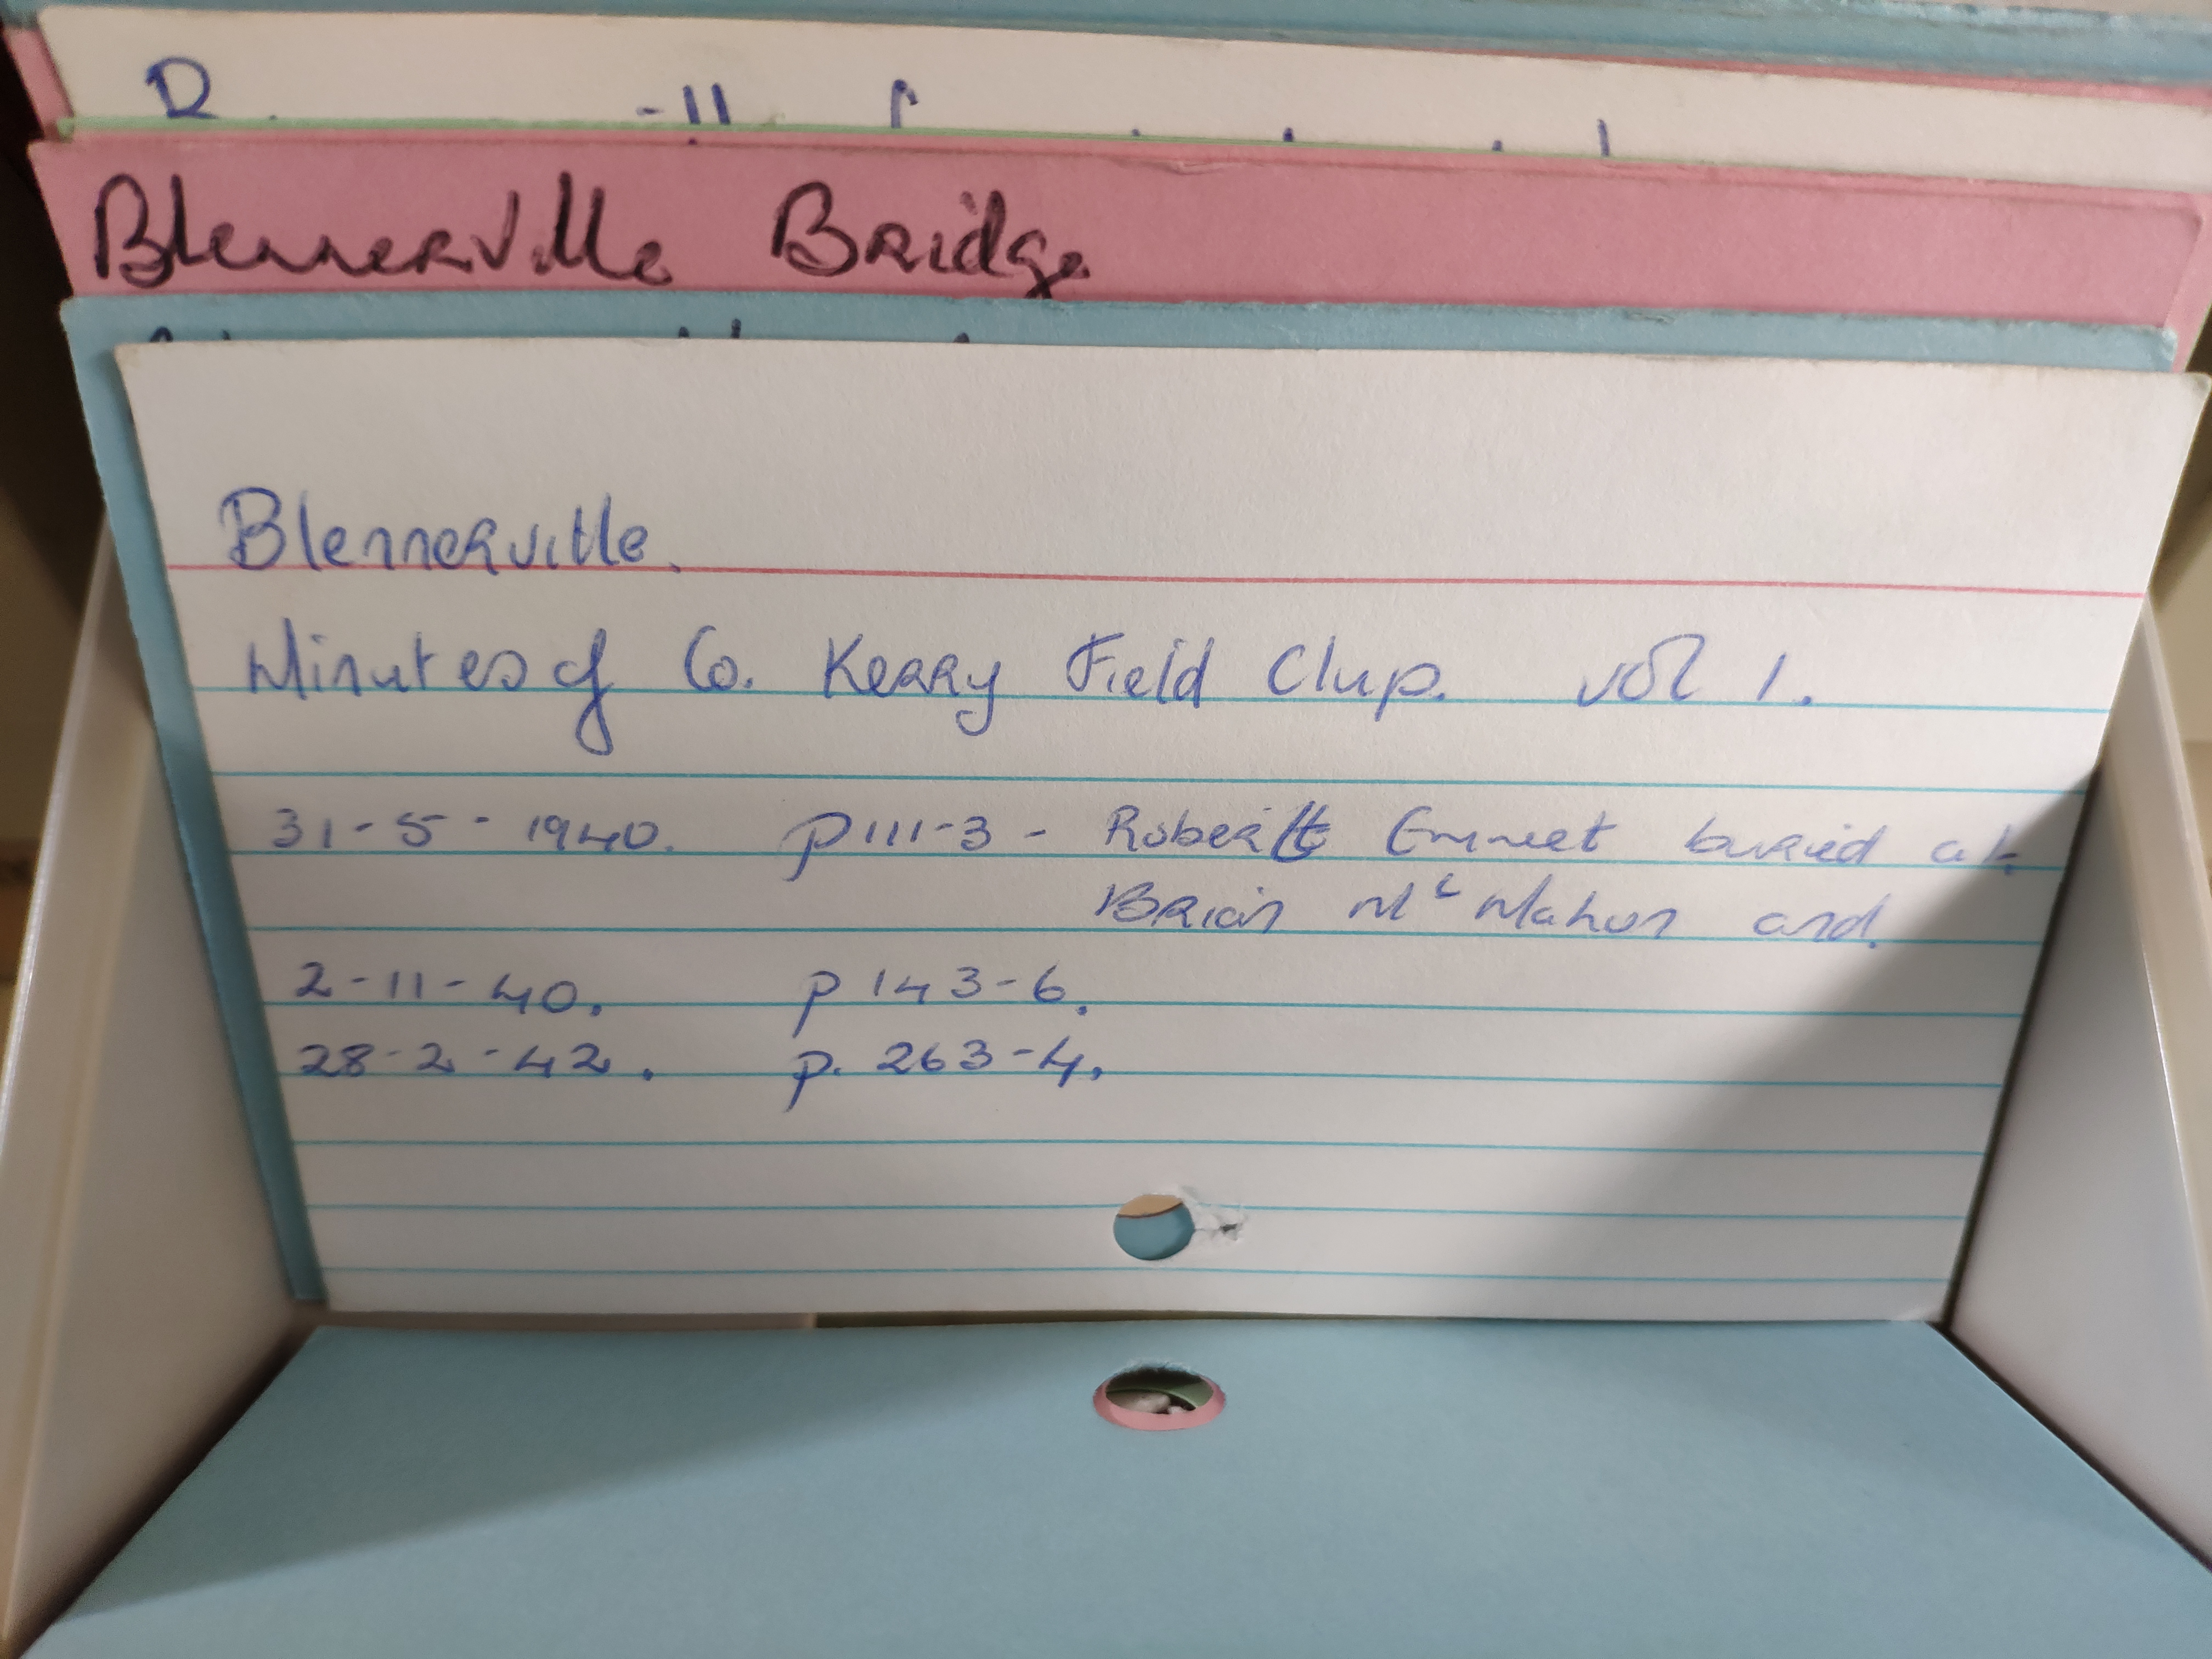 Blennerville Bridge
Blennerville.
Minutes of Co. Kerry Field Clup. vol 1.
31-5-1940. p111-3- Robert Emmet buried at
Brian Mc Mahon and.
2-11-40. p 143-6.
28-2-42. p. 263-4.